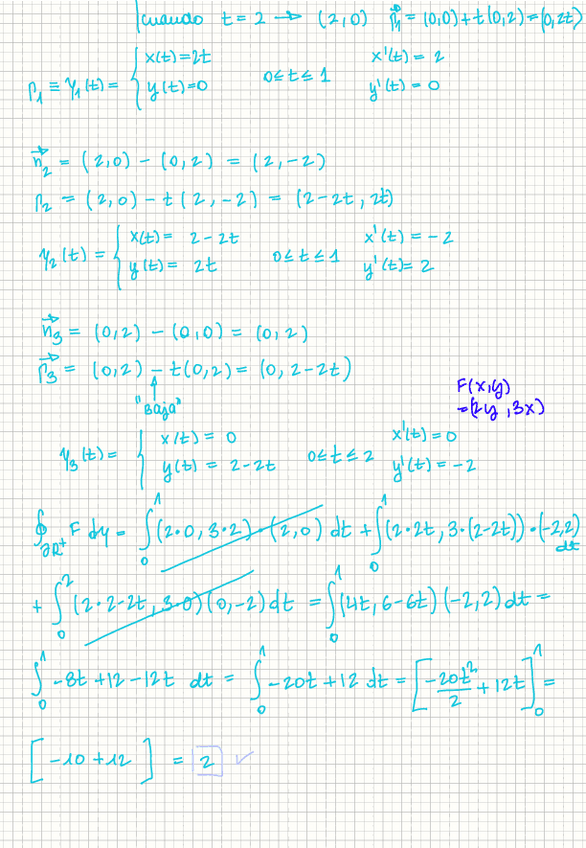 cuando t = 2 → (2,0) r⃗₁ = (0,0)+t(0,2)=(0,2t)
Γ₁ ≡ γ₁(t) = { x(t)=2t 0≤t≤1 x'(t) = 2
y(t)=0 y'(t) = 0
n⃗₂ = (2,0) - (0,2) = (2,-2)
r₂ = (2,0) - t(2,-2) = (2-2t, 2t)
γ₂(t) = { x(t)= 2-2t 0≤t≤1 x'(t) = -2
y(t)= 2t y'(t)= 2
n⃗₃ = (0,2) - (0,0) = (0,2)
r⃗₃ = (0,2) - t(0,2) = (0, 2-2t)
"Baja"
F(x,y)
=(2y, 3x)
γ₃(t) = { x(t) = 0 0≤t≤2 x'(t) = 0
y(t) = 2-2t y'(t) = -2
∮∂R⁺ F dγ = ∫₀¹ (2·0, 3·2)·(2,0) dt + ∫₀¹ (2·2t, 3·(2-2t))·(-2,2) dt
+ ∫₀² (2·2-2t, 3·0)(0,-2) dt = ∫₀¹ (4t, 6-6t)(-2,2) dt =
∫₀¹ -8t+12-12t dt = ∫₀¹ -20t+12 dt = [-20t²/2 + 12t]₀¹ =
[-10+12] = 2 ✓